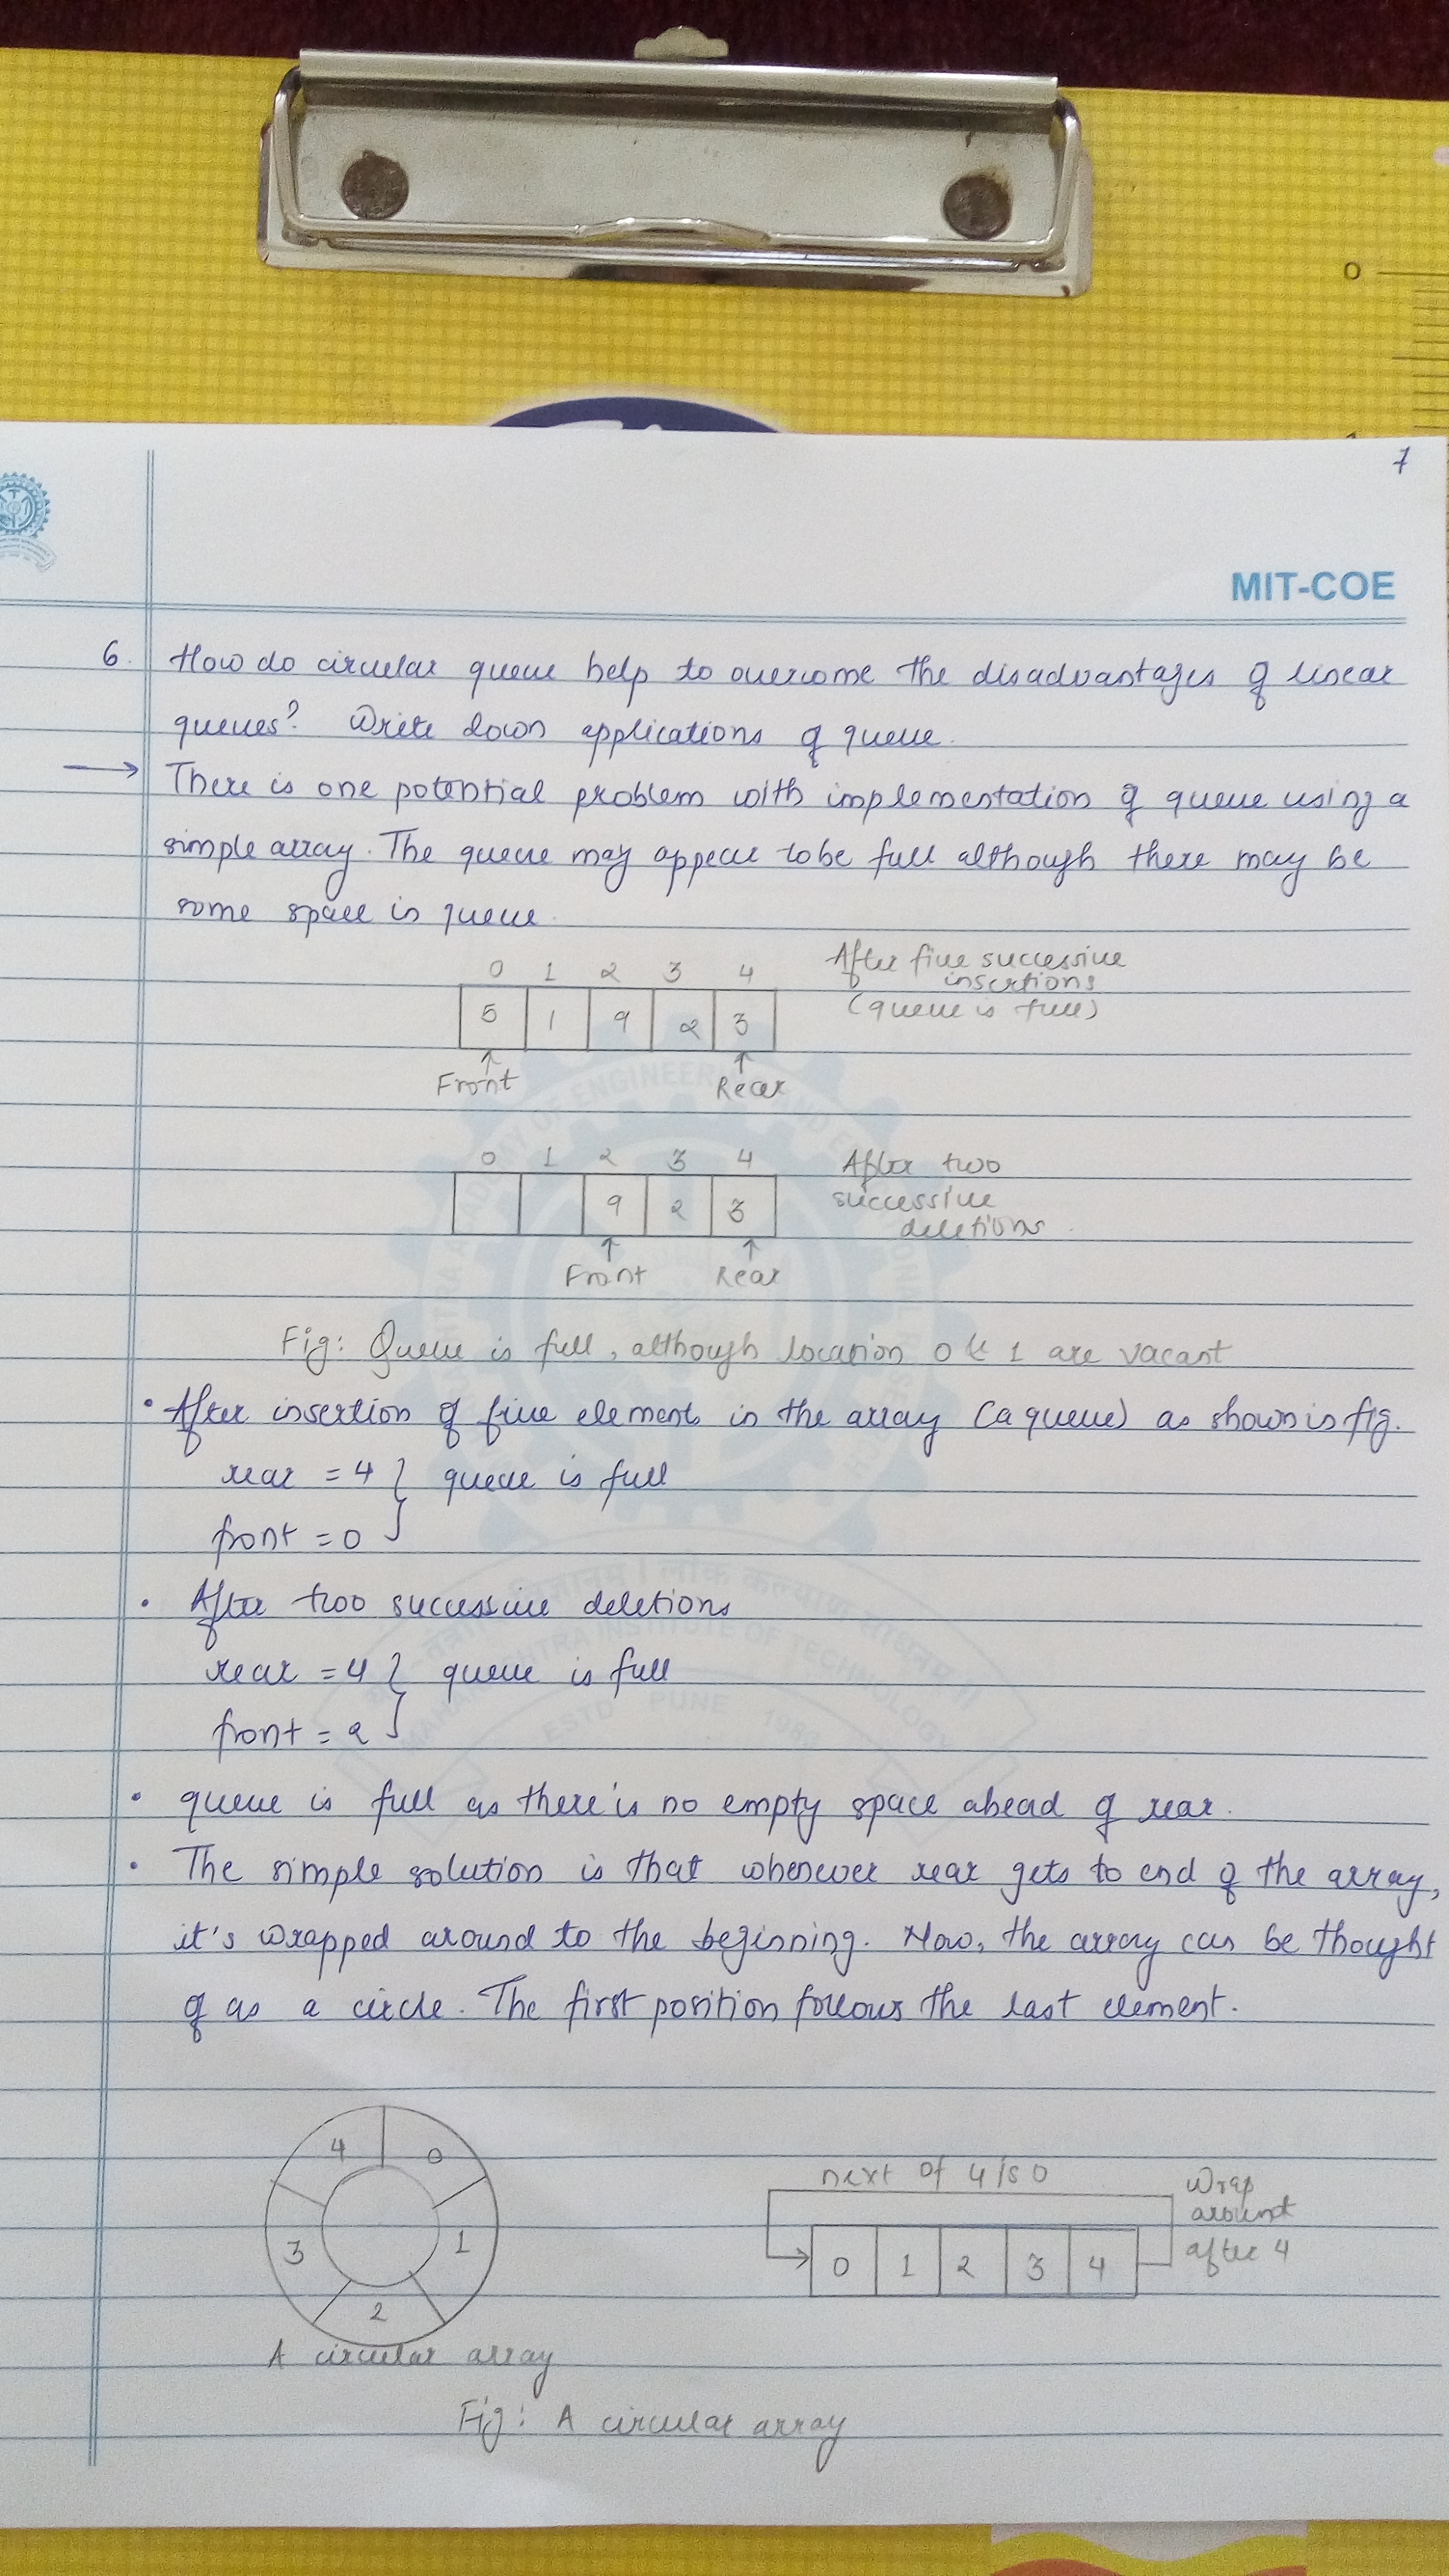 0
1
7
MIT-COE
6. How do circular queue help to overcome the disadvantages of linear
queues? Write down applications of queue.
→ There is one potential problem with implementation of queue using a
simple array. The queue may appear to be full although there may be
some space in queue.
0 1 2 3 4 After five successive
insertions
5 1 9 2 3 (queue is full)
↑ ↑
Front Rear
0 1 2 3 4 After two
9 2 3 successive
deletions.
↑ ↑
Front Rear
Fig: Queue is full, although location 0 & 1 are vacant
• After insertion of five elements in the array (a queue) as shown is fig.
rear = 4 } queue is full
front = 0
• After two successive deletions
rear = 4 } queue is full
front = 2
• queue is full as there is no empty space ahead of rear.
• The simple solution is that whenever rear gets to end of the array,
it's wrapped around to the beginning. Now, the array can be thought
of as a circle. The first position follows the last element.
4 0
3 1
2
A circular array
next of 4 is 0
Wrap
around
after 4
0 1 2 3 4
Fig: A circular array
MAHARASHTRA INSTITUTE OF TECHNOLOGY
ESTD PUNE